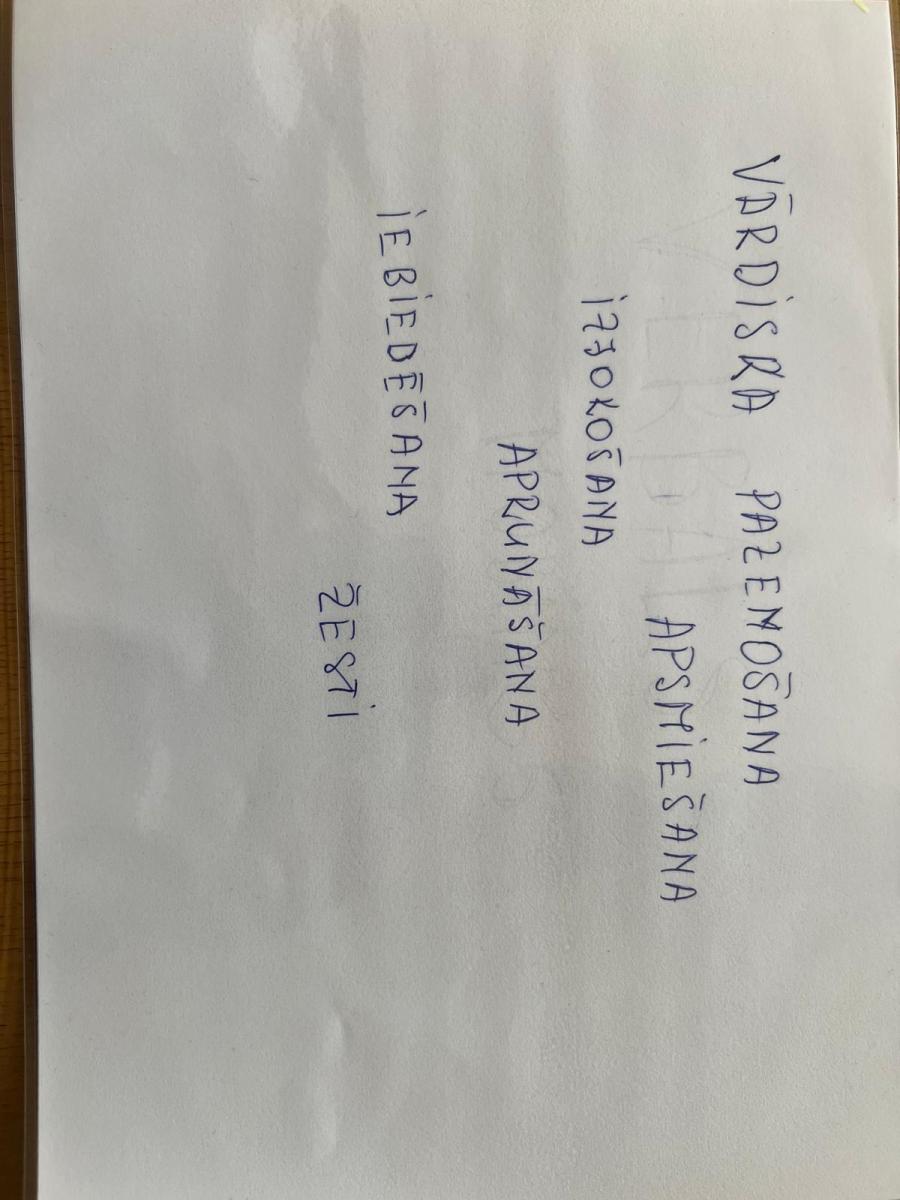 VĀRDISKA PAZEMOŠANA
APSMIEŠANA
IZJOKOŠANA
APRUNĀŠANA
IEBIEDĒŠANA
ŽESTI